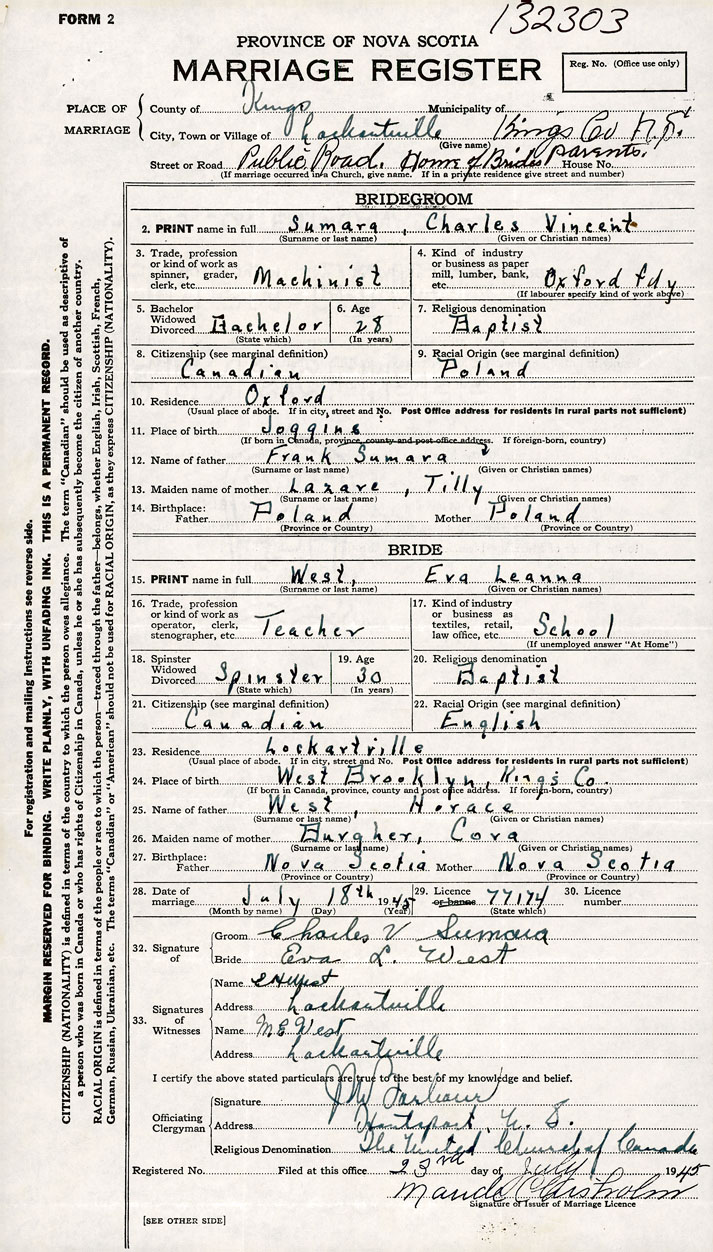 FORM 2
132303
PROVINCE OF NOVA SCOTIA
MARRIAGE REGISTER
Reg. No. (Office use only)
PLACE OF MARRIAGE
County of Kings Municipality of
City, Town or Village of Lockartville Kings Co N.S.
(Give name)
Street or Road Public Road. Home of Brides parents. House No.
(If marriage occurred in a Church, give name. If in a private residence give street and number)
BRIDEGROOM
2. PRINT name in full Sumara, Charles Vincent
(Surname or last name) (Given or Christian names)
3. Trade, profession or kind of work as spinner, grader, clerk, etc. Machinist
4. Kind of industry or business as paper mill, lumber, bank, etc. Oxford fdy
(If labourer specify kind of work above)
5. Bachelor Widowed Divorced Bachelor (State which)
6. Age 28 (In years)
7. Religious denomination Baptist
8. Citizenship (see marginal definition) Canadian
9. Racial Origin (see marginal definition) Poland
10. Residence Oxford
(Usual place of abode. If in city, street and No. Post Office address for residents in rural parts not sufficient)
11. Place of birth Joggins
(If born in Canada, province, county and post office address. If foreign-born, country)
12. Name of father Frank Sumara
(Surname or last name) (Given or Christian names)
13. Maiden name of mother Lazare, Tilly
(Surname or last name) (Given or Christian names)
14. Birthplace: Father Poland Mother Poland
(Province or Country) (Province or Country)
BRIDE
15. PRINT name in full West, Eva Leanna
(Surname or last name) (Given or Christian names)
16. Trade, profession or kind of work as operator, clerk, stenographer, etc. Teacher
17. Kind of industry or business as textiles, retail, law office, etc. School
(If unemployed answer "At Home")
18. Spinster Widowed Divorced Spinster (State which)
19. Age 30 (In years)
20. Religious denomination Baptist
21. Citizenship (see marginal definition) Canadian
22. Racial Origin (see marginal definition) English
23. Residence Lockartville
(Usual place of abode. If in city, street and No. Post Office address for residents in rural parts not sufficient)
24. Place of birth West Brooklyn, Kings Co.
(If born in Canada, province, county and post office address. If foreign-born, country)
25. Name of father West, Horace
(Surname or last name) (Given or Christian names)
26. Maiden name of mother Burgher, Cora
(Surname or last name) (Given or Christian names)
27. Birthplace: Father Nova Scotia Mother Nova Scotia
(Province or Country) (Province or Country)
28. Date of marriage July 18th 1945
(Month by name) (Day) (Year)
29. Licence or banns 77174 (State which)
30. Licence number
32. Signature of
Groom Charles V Sumara
Bride Eva L. West
33. Signatures of Witnesses
Name West
Address Lockartville
Name M E West
Address Lockartville
I certify the above stated particulars are true to the best of my knowledge and belief.
Officiating Clergyman
Signature
Address Hantsport, N. S.
Religious Denomination The United Church of Canada
Registered No. Filed at this office 23rd day of July 1945
Maude Chisholm
Signature of Issuer of Marriage Licence
[SEE OTHER SIDE]
For registration and mailing instructions see reverse side.
MARGIN RESERVED FOR BINDING. WRITE PLAINLY, WITH UNFADING INK. THIS IS A PERMANENT RECORD.
CITIZENSHIP (NATIONALITY) is defined in terms of the country to which the person owes allegiance. The term "Canadian" should be used as descriptive of
a person who was born in Canada or who has rights of Citizenship in Canada, unless he or she has subsequently become the citizen of another country.
RACIAL ORIGIN is defined in terms of the people or race to which the person—traced through the father—belongs, whether English, Irish, Scottish, French,
German, Russian, Ukrainian, etc. The terms "Canadian" or "American" should not be used for RACIAL ORIGIN, as they express CITIZENSHIP (NATIONALITY).